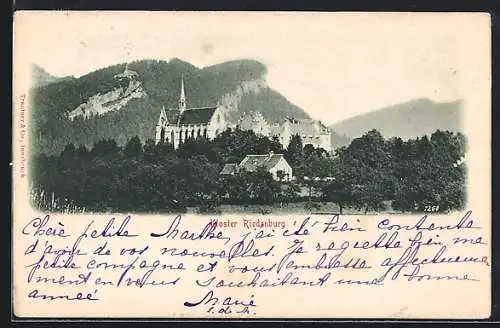 Trautner & Co., Innsbruck
7268
Kloster Riedenburg
Chère petite Marthe, j'ai été bien contente
d'avoir de vos nouvelles, Je regrette bien ma
petite compagne et vous embrasse affectueuse
ment en vous souhaitant une bonne
année
Marie